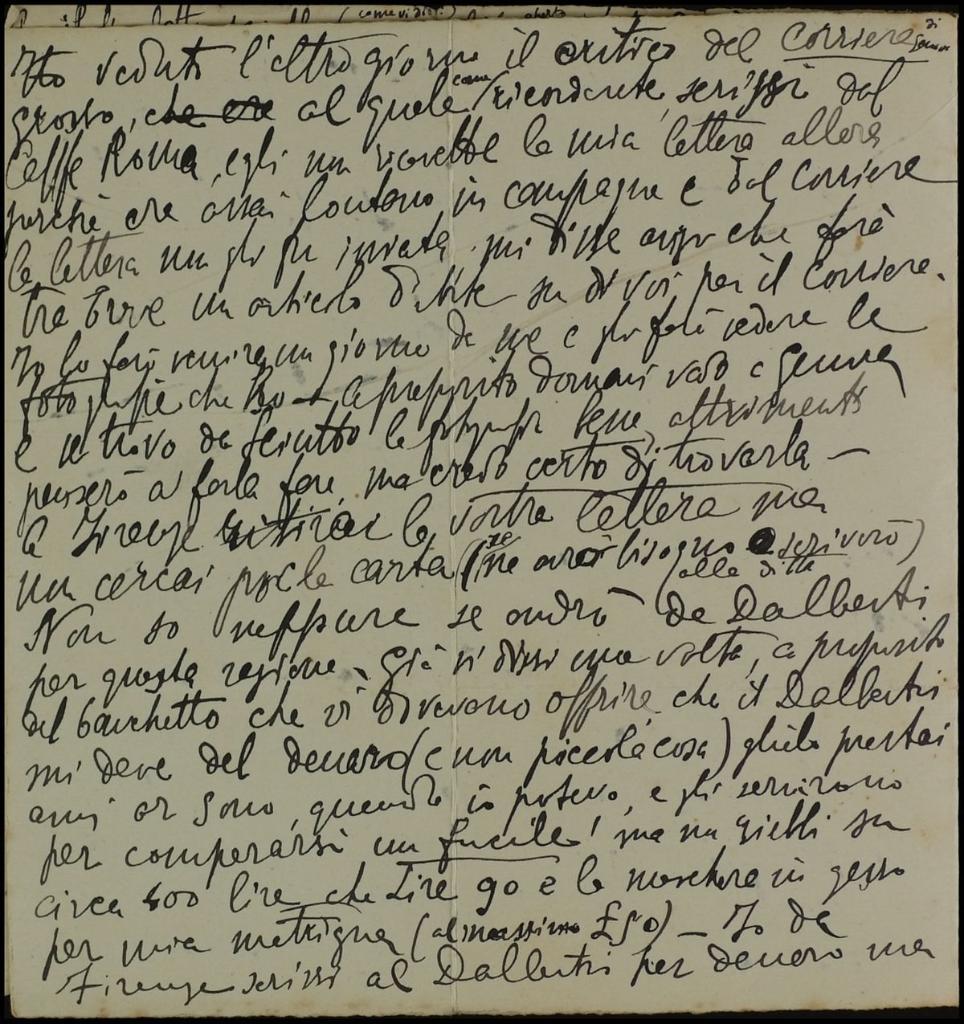 (come vi dissi)
Ho veduto l'altro giorno il critico del Corriere di Genova
grosso, che era al quale come ricorderete, scrissi dal
Caffè Roma, egli non ricevette la mia lettera allora
perchè era assai lontano, in campagna e dal Corriere
la lettera non gli fu inviata. mi disse anzi che farà
tra breve un articolo d'arte su di voi per il Corriere.
Io lo farò venire un giorno da me e gli farò vedere le
fotografie che ho — a proposito domani vado a Genova
e se trovo da Sciutto la fotografia bene, altrimenti
penserò a farla fare, ma credo certo di trovarla —
A Firenze ritirai la vostra lettera ma
non cercai per la carta (se ne avrò bisogno scriverò)
(alla ditta
Non so neppure se andrò da Dalbesti
per questa ragione. Già vi dissi una volta, a proposito
del banchetto che vi dovevano offrire, che il Dalbesti
mi deve del denaro (e non piccola cosa) glielo prestai
anni or sono, quando io potevo, e gli servirono
per comperarsi un fucile! ma non ebbi su
circa 400 lire che Lire 90 e la maschera in gesso
per mia matrigna (al massimo £50) — Io da
Firenze scrissi al Dalbesti per denaro ma